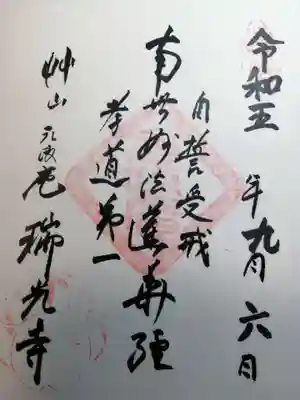 令和五年九月六日
自誓受戒
南無妙法蓮華經
孝道第一
艸山元政庵瑞光寺